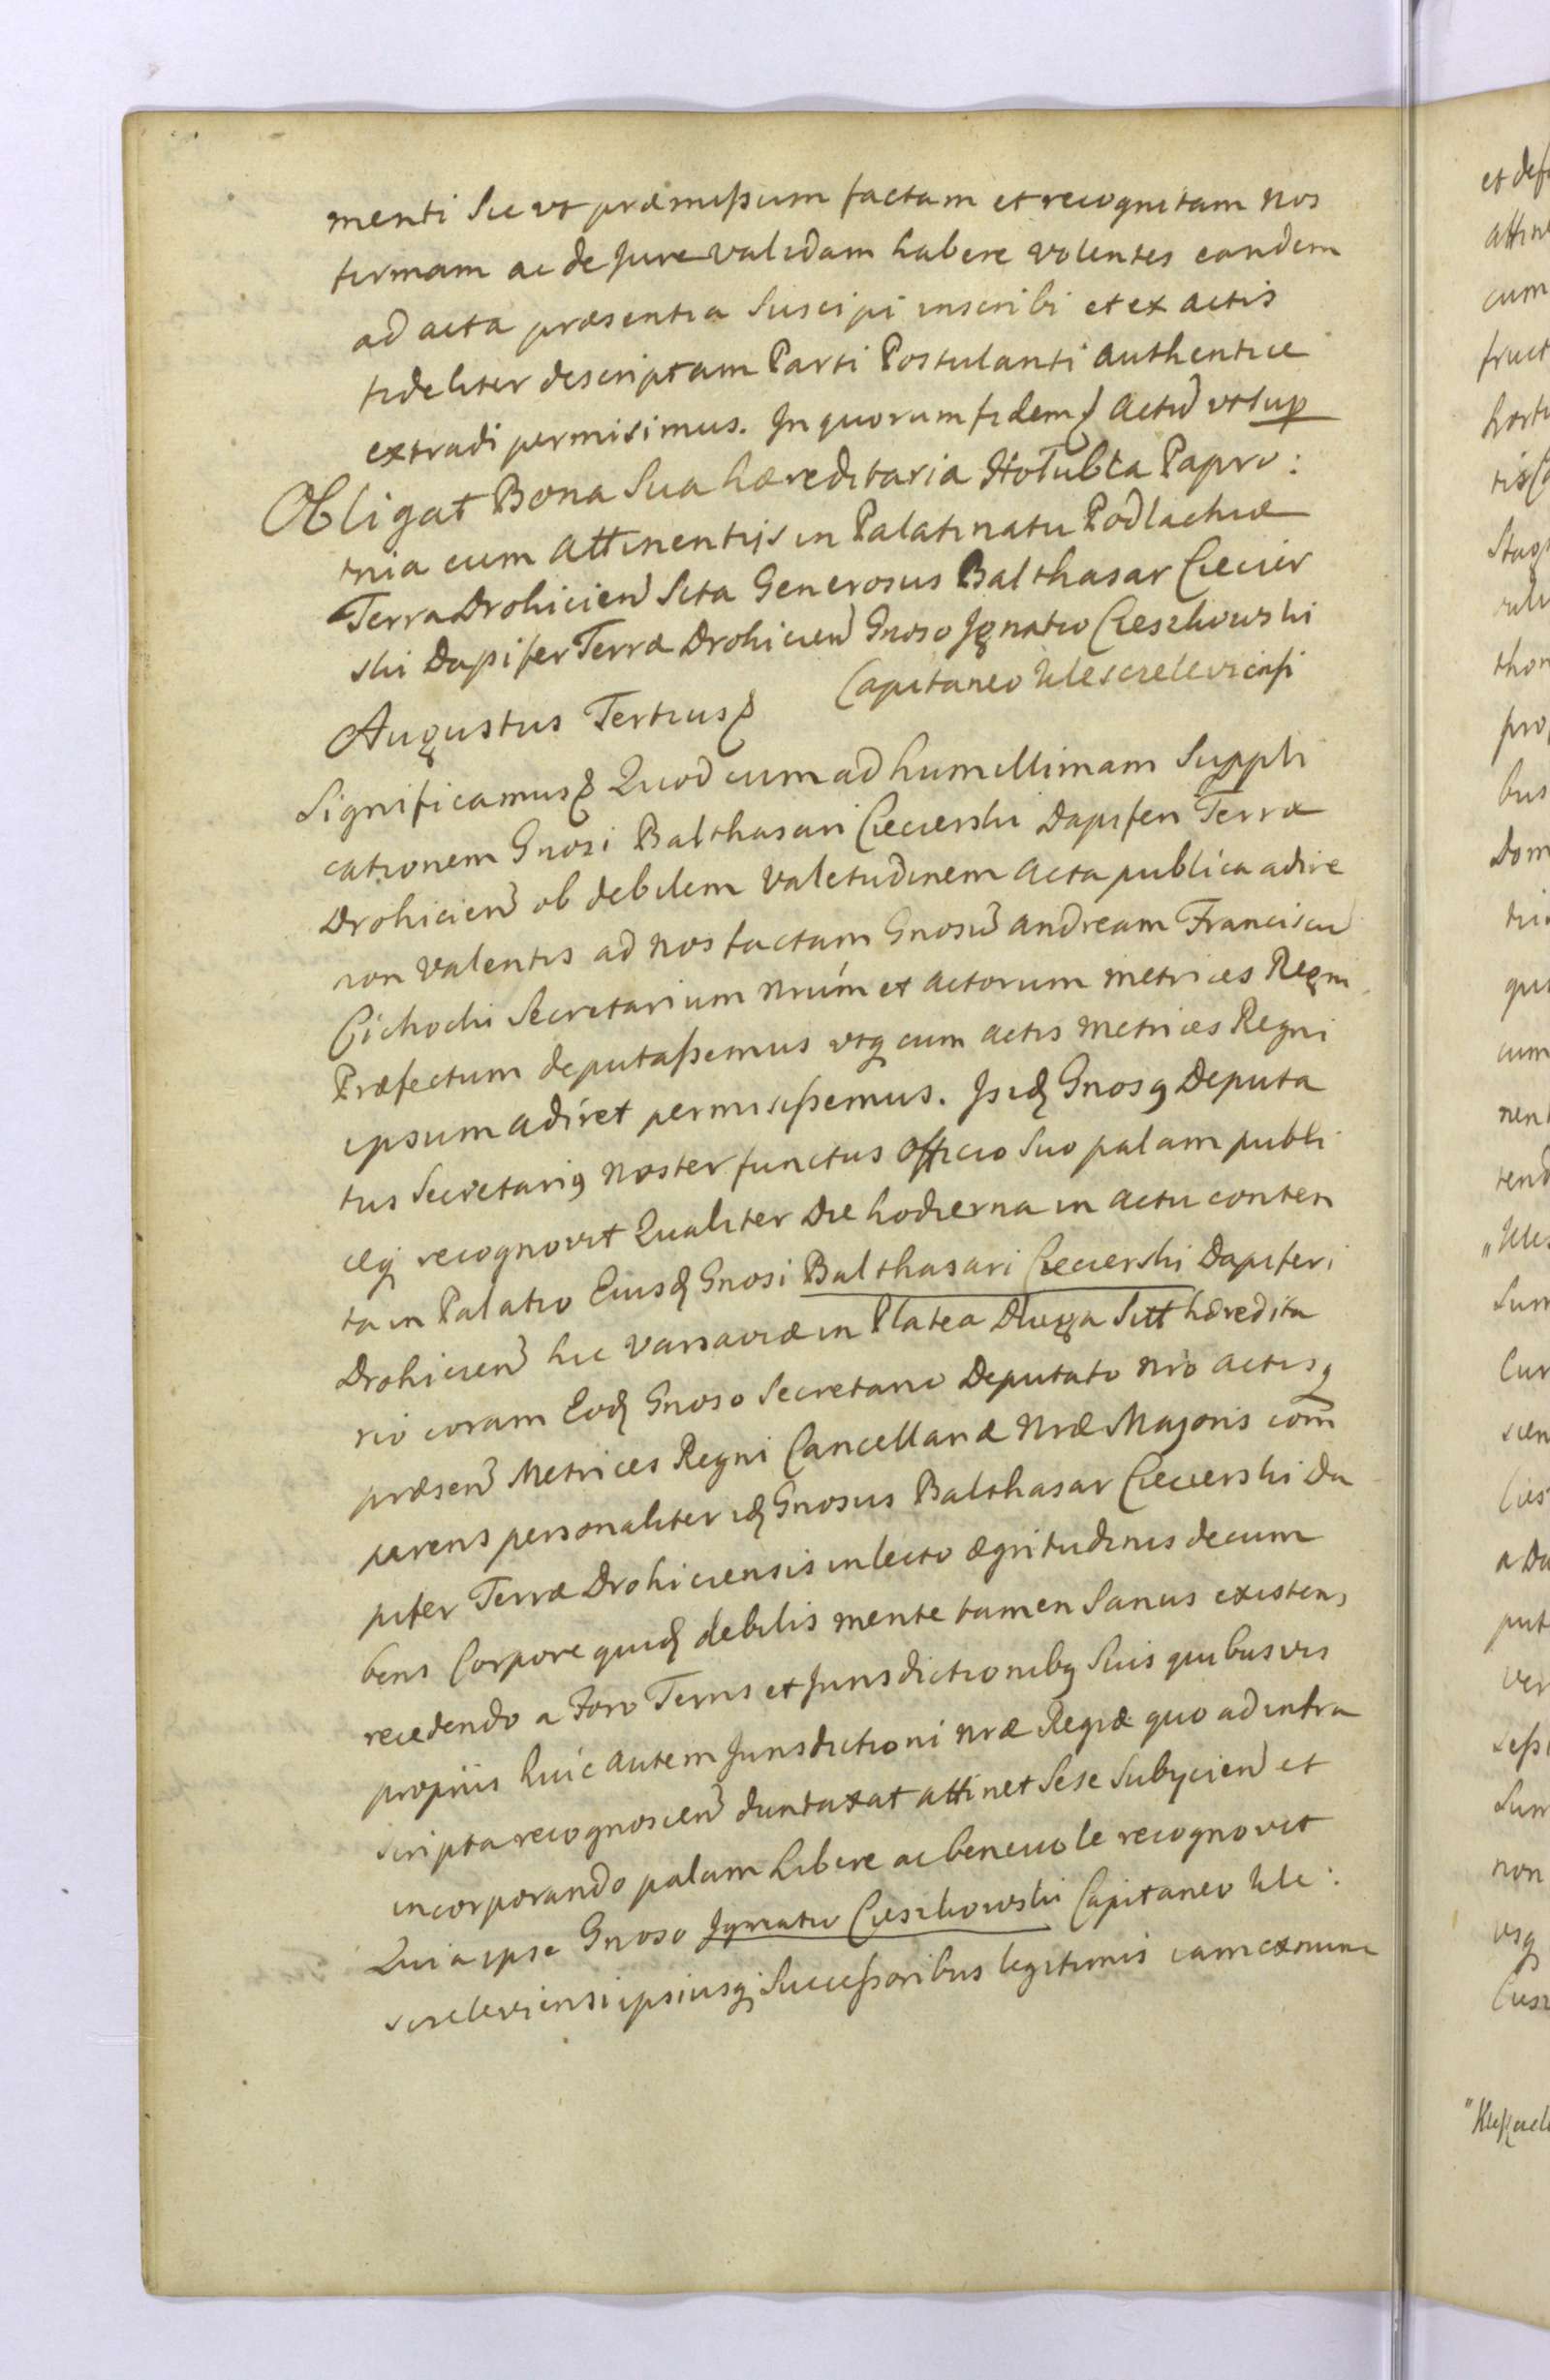 menti Sic vt præmissum factam et recognitam nos
firmam ac de Jure validam habere volentes eandem
ad acta præsentia Suscipi inscribi et ex actis
fideliter descriptam Parti Postulanti authentice
extradi permisimus. In quorum fidem Actũ vt sup
Obligat Bona Sua hæreditaria Hołubla Papro:
tnia cum attinentijs in Palatinatu Podlachiæ
Terra Drohicien Sita Generosus Balthasar Ciecier
ski Dapifer Terræ Drohicien Gnoso Ignatio Cieszkowski
Capitaneo Kleszczeleviensi
Augustus Tertius
Significamus Quod cum ad humillimam Suppli
cationem Gnosi Balthasari Ciecierski Dapiferi Terræ
Drohicien ob debilem valetudinem acta publica adire
non valentis ad nos factam Gnosũ andream Franciscũ
Cichocki Secretarium nrum et actorum metrices Regni
Præfectum deputassemus vtq cum actis metrices Regni
ipsum adiret permisissemus. Isq Gnosq Deputa
tus Secretariq noster functus officio Suo palam publi
ceq recognovit Qualiter Die hodierna in actu conten
ta in Palatio Eiusq Gnosi Balthasari Ciecierski Dapiferi
Drohicien hic varsaviæ in Platea Dluga Sitt hæredita
rio coram Eoq Gnoso Secretario Deputato nro actisq
præsen Metrices Regni Cancellariæ nræ Majoris com
parens personaliter iq Gnosus Balthasar Ciecierski Da
pifer Terræ Drohiciensis in lecto ægritudinis decum
bens Corpore quiq debilis mente tamen Sanus existens
recedendo a Foro Terris et Jurisdictionibq Suis quibusvis
propriis huic autem Jurisdictioni nræ Regiæ quo ad infra
scripta recognoscen duntaxat attinet Sese Subycien et
incorporando palam Libere ac benevole recognovit
Quia ipse Gnoso Ignatio Cieszkowski Capitaneo Kle:
szczeleviensi ipsiusq Successoribus legitimis iam ex nunc